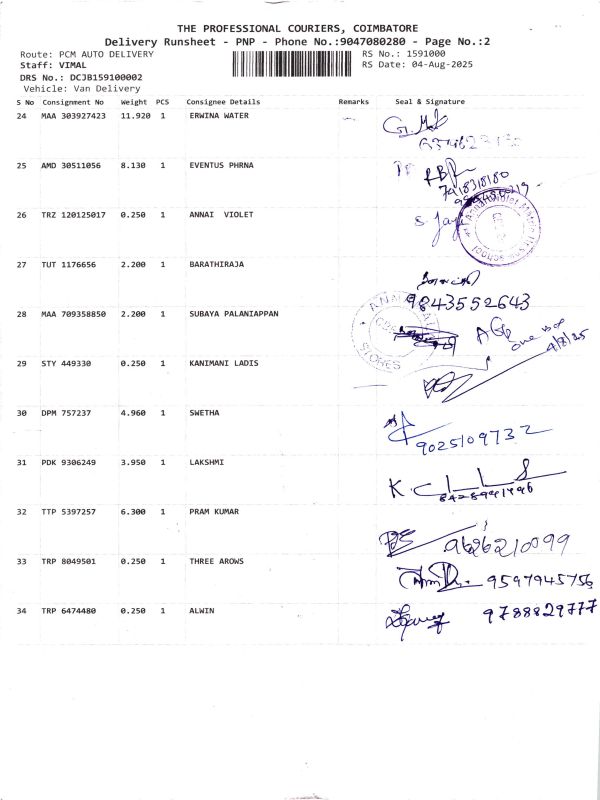 THE PROFESSIONAL COURIERS, COIMBATORE
Delivery Runsheet - PNP - Phone No.:9047080280 - Page No.:2
Route: PCM AUTO DELIVERY RS No.: 1591000
Staff: VIMAL RS Date: 04-Aug-2025
DRS No.: DCJB159100002
Vehicle: Van Delivery
S No Consignment No Weight PCS Consignee Details Remarks Seal & Signature
24 MAA 303927423 11.920 1 ERWINA WATER
25 AMD 30511056 8.130 1 EVENTUS PHRNA
7918318180
26 TRZ 120125017 0.250 1 ANNAI VIOLET
27 TUT 1176656 2.200 1 BARATHIRAJA
9843552643
28 MAA 709358850 2.200 1 SUBAYA PALANIAPPAN
STORES
one box
4/8/25
29 STY 449330 0.250 1 KANIMANI LADIS
30 DPM 757237 4.960 1 SWETHA
9025109732
31 PDK 9306249 3.950 1 LAKSHMI
32 TTP 5397257 6.300 1 PRAM KUMAR
9626210099
33 TRP 8049501 0.250 1 THREE AROWS
9597945756
34 TRP 6474480 0.250 1 ALWIN
9788829777